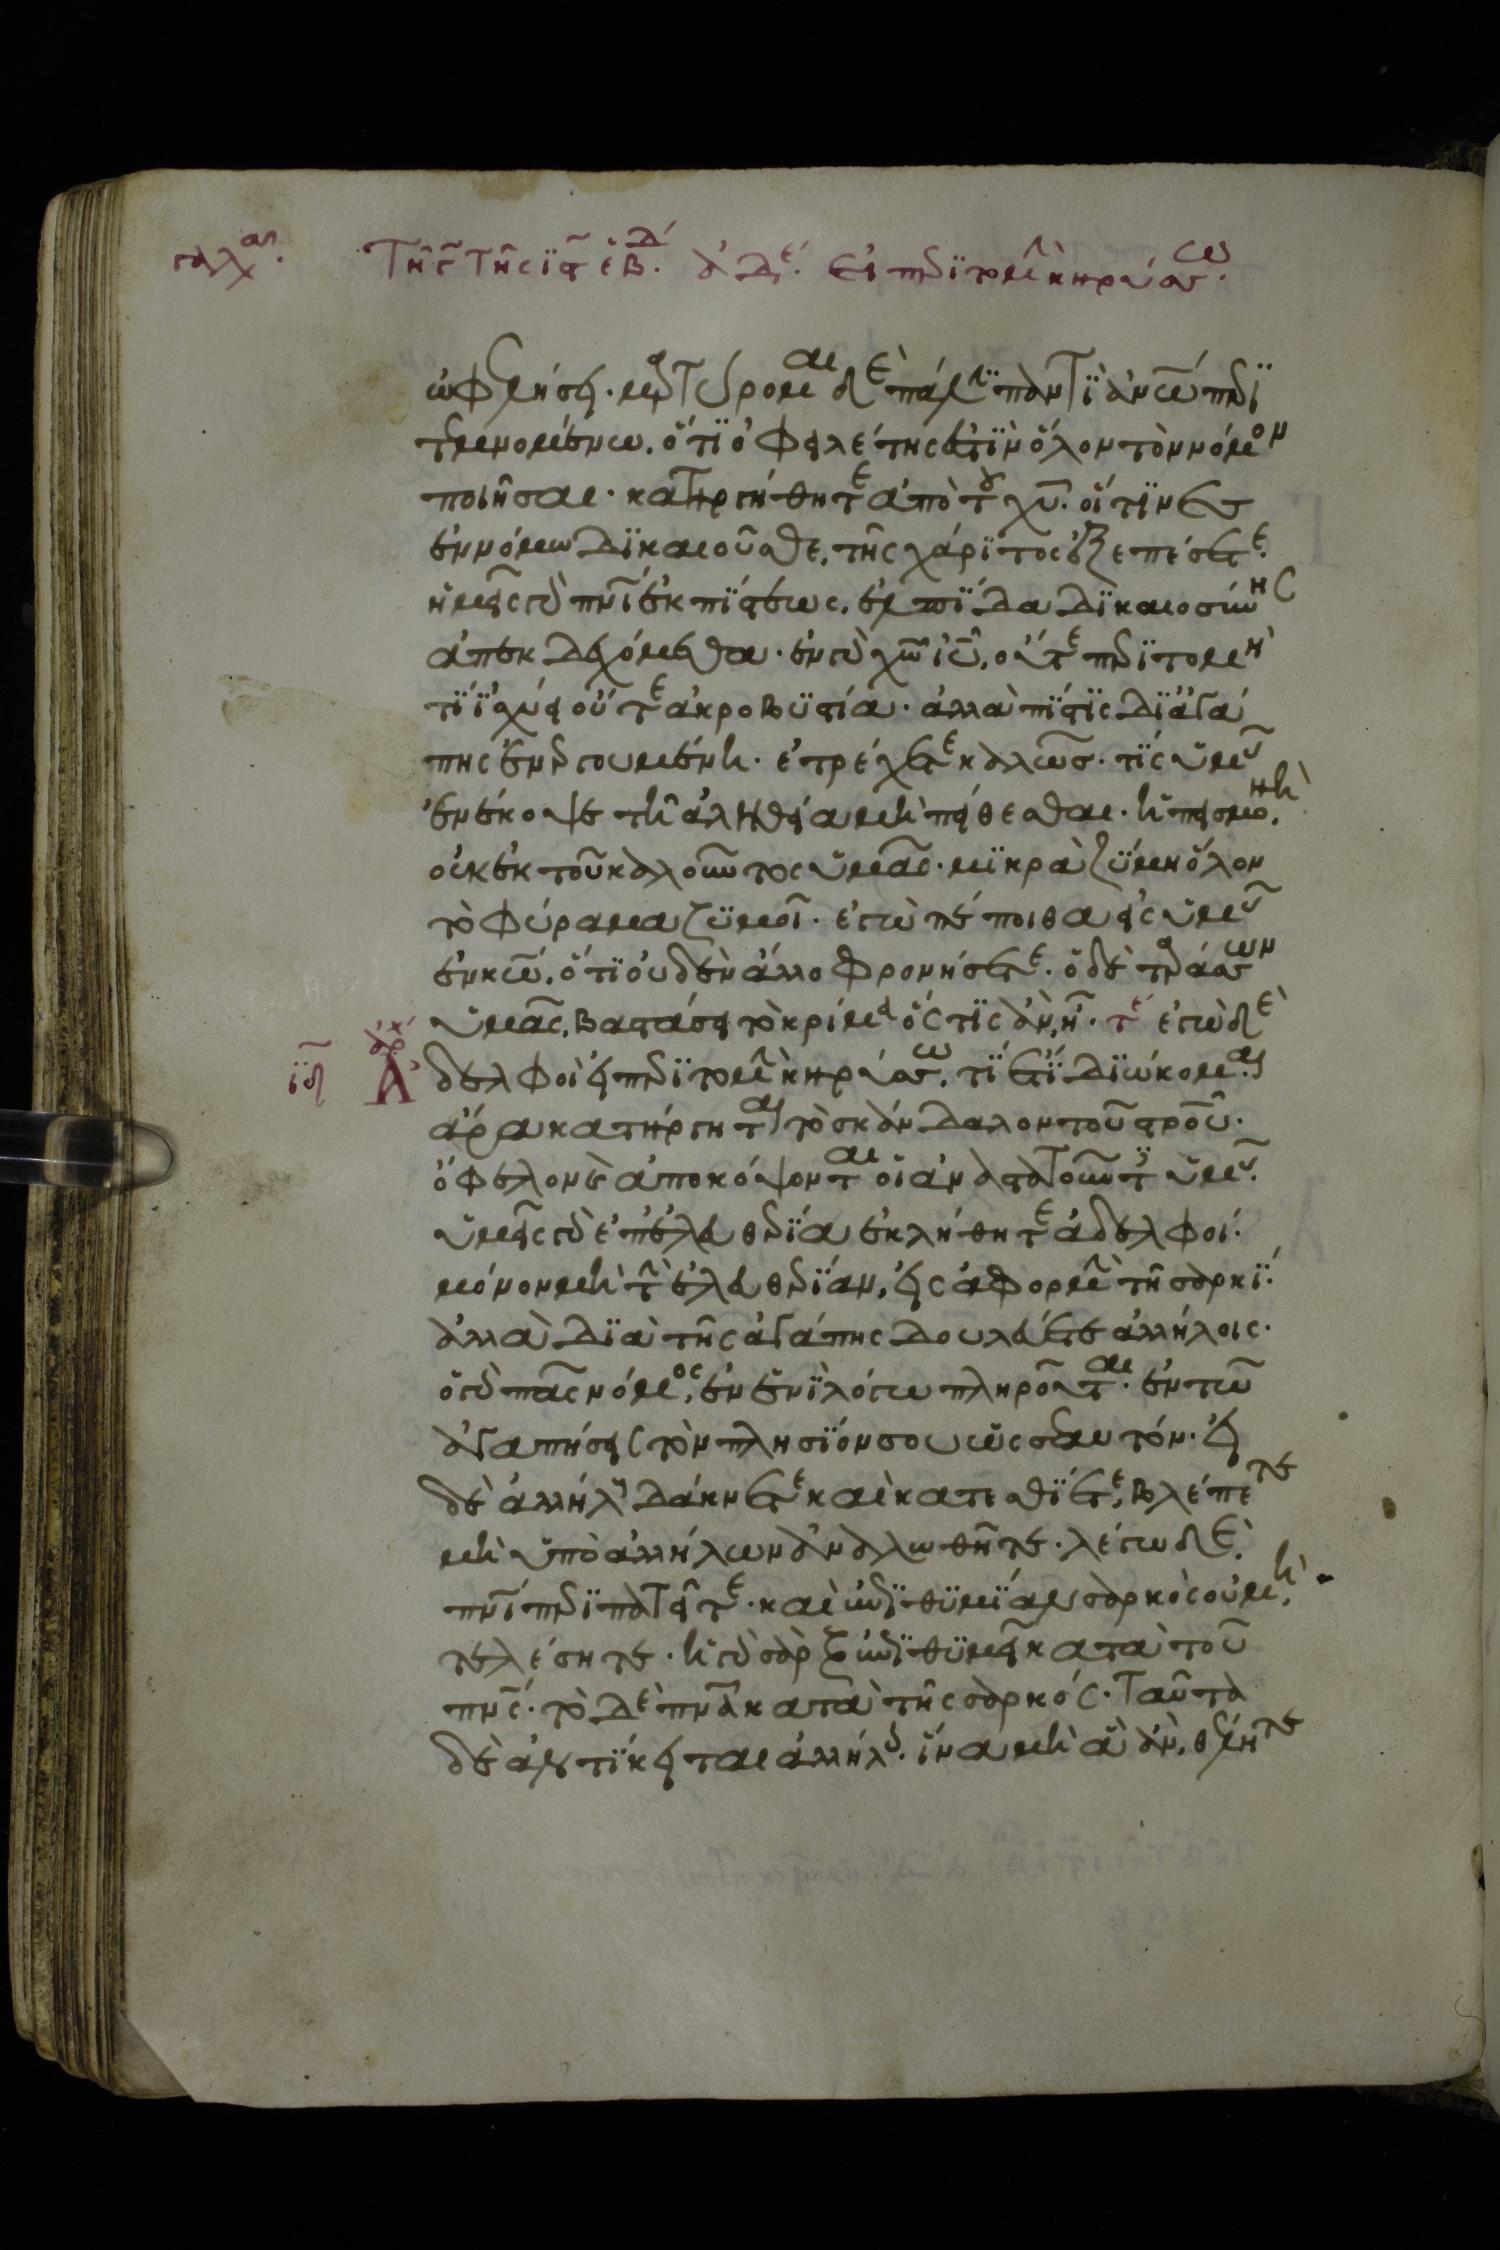 γαλα.
Τῆ ς τῆς ις ἑβδ. ἀδε. εἰ περιτομὴν κηρύσσω.
ὠφελήσει· μαρτύρομαι δὲ πάλϊν παντϊ ἀνῶ περϊ
τεμνομένω, ὅτϊ ὀφειλέτης ἐστϊν ὅλον τὸν νόμον
ποιῆσαι· κατηργήθητε ἀπὸ τοῦ χυ̅· οἵτϊνες
ἐν νόμω δϊκαιοῦσθε, τῆς χάρϊτος ἐξεπέσετε·
ἡμεῖς γὰρ πνι̅ ἐκ πϊστεως, ἐλπϊδα δϊκαιοσύνης
ἀπεκδεχόμεθα· ἐν γὰρ χω̅ ιυ̅, οὔτε περϊτομὴ
τϊ ϊσχύει οὔτε ἀκροβϋστία· ἀλλὰ πϊστϊς δϊ ἀγά
πης ἐνεργουμένη· ἐτρέχετε καλῶς· τϊς ὑμᾶς
ἐνέκοψε τῆ ἀληθεία μὴ πείθεσθαι· ἡ πεισμονὴ,
οὐκ ἐκ τοῦ καλοῦντος ὑμᾶς· μϊκρὰ ζϋμη ὅλον
τὸ φύραμα ζϋμοῖ· ἐγὼ πέποιθα εἰς ὑμᾶς
ἐν κω̅, ὅτϊ οὐδὲν ἄλλο φρονήσετε· ὁ δὲ ταράσσων
ὑμᾶς, βαστάσει τὸ κρίμα ὅς τϊς ἂν ἦ· τε ἐγὼ δὲ
ϊδ ἀρχ Ἀδελφοὶ εἰ περϊτομὴν κηρύσσω, τϊ ἔτϊ δϊώκομαι·
ἄρα κατήργηται τὸ σκάνδαλον τοῦ στροῦ·
ὄφελον ἐ ἀποκόψονται οἱ ἀναστατοῦντες ὑμᾶς·
ὑμεῖς γὰρ ἐπ ἐλευθερϊα ἐκλήθητε ἀδελφοί·
μόνον μὴ τὴν ἐλευθερϊαν, εἰς ἀφορμὴν τῆ σαρκϊ·
ἀλλὰ δϊὰ τῆς ἀγάπης δουλεύετε ἀλλήλοις·
ὁ γὰρ πᾶς νόμος, ἐν ἑνϊ λόγω πληροῦται· ἐν τῶ
ἀγαπήσεις τὸν πλησϊον σου ὡς σεαυτόν· εἰ
δὲ ἀλλήλους δάκνετε καὶ κατεσθϊετε, βλέπετε
μὴ ὑπὸ ἀλλήλων ἀναλωθῆτε· λέγω δὲ,
πνι̅ περϊπατεῖτε· καὶ ἐπϊθϋμϊαν σαρκὸς οὐ μὴ,
τελέσητε· ἡ γὰρ σὰρξ ἐπϊθϋμεῖ κατὰ τοῦ
πνς̅· τὸ δὲ πνα̅ κατὰ τῆς σαρκός· ταῦτα
δὲ ἀντϊκειται ἀλλήλοις· ἵνα μὴ ἃ ἂν, θέλητε